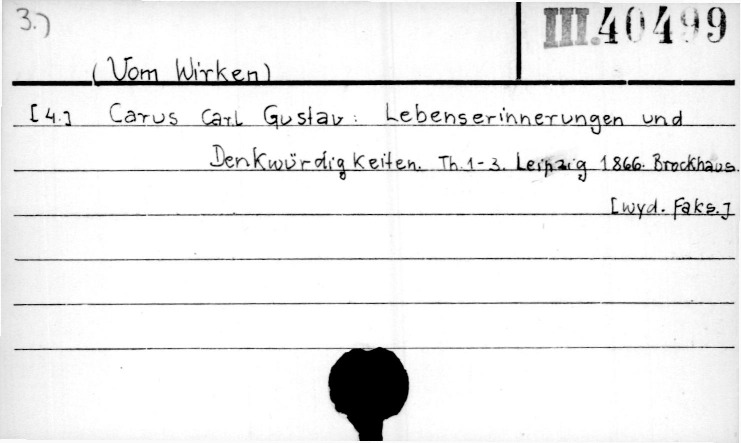 3.)
III.40499
(Vom Wirken)
[4.] Carus Carl Gustav: Lebenserinnerungen und
Denkwürdigkeiten. Th. 1-3. Leipzig 1866. Brockhaus.
[wyd. faks.]